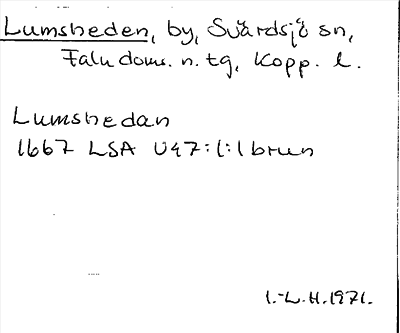 Lumsheden, by, Svärdsjö sn,
Falu doms. n. tg, Kopp. l.
Lumshedan
1667 LSA U47:1:1 brun
I.-L.H.1971.